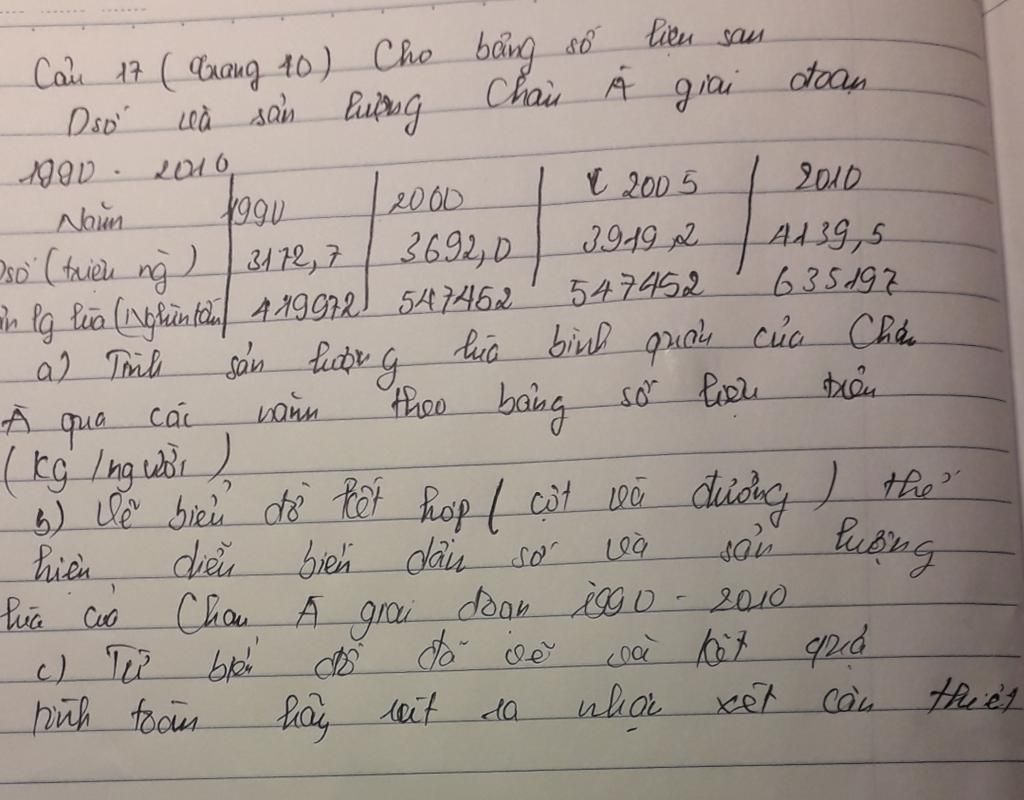 Câu 17 (Trang 10) Cho bảng số liệu sau
Dsố và sản lượng Châu Á giai đoạn
1990 - 2010
Năm 1990 2000 2005 2010
Dsố (triệu ng) 3172,7 3692,0 3919,2 4139,5
lg lúa (Nghìn tấn) 419972 547452 547452 635197
a) Tính sản lượng lúa bình quân của Châu
Á qua các năm theo bảng số liệu trên
(Kg / người)
b) Vẽ biểu đồ kết hợp (cột và đường) thể
hiện diễn biến dân số và sản lượng
lúa của Châu Á giai đoạn 1990 - 2010
c) Từ biểu đồ đã vẽ và kết quả
tính toán hãy rút ra nhận xét cần thiết